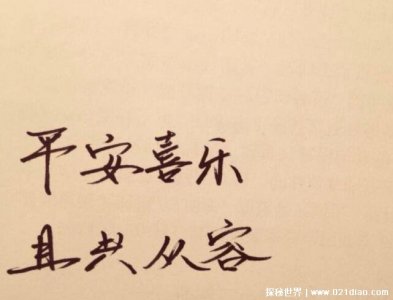 平安喜乐
且共从容
探秘世界｜www.021diao.com